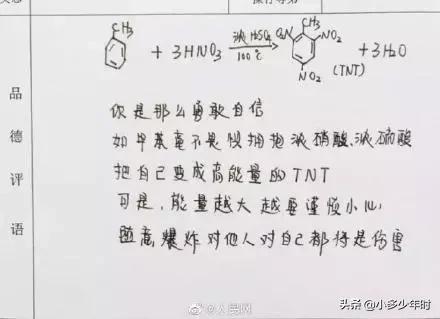 操行等第
CH3
+ 3HNO3 浓H2SO4 100℃ CH3 O2N NO2 NO2 + 3H2O
(TNT)
品德评语
你是那么勇敢自信
如甲苯毫不畏惧拥抱浓硝酸、浓硫酸
把自己变成高能量的TNT
可是,能量越大越要谨慎小心
随意爆炸对他人对自己都将是伤害
@人民网
头条 @小多少年时